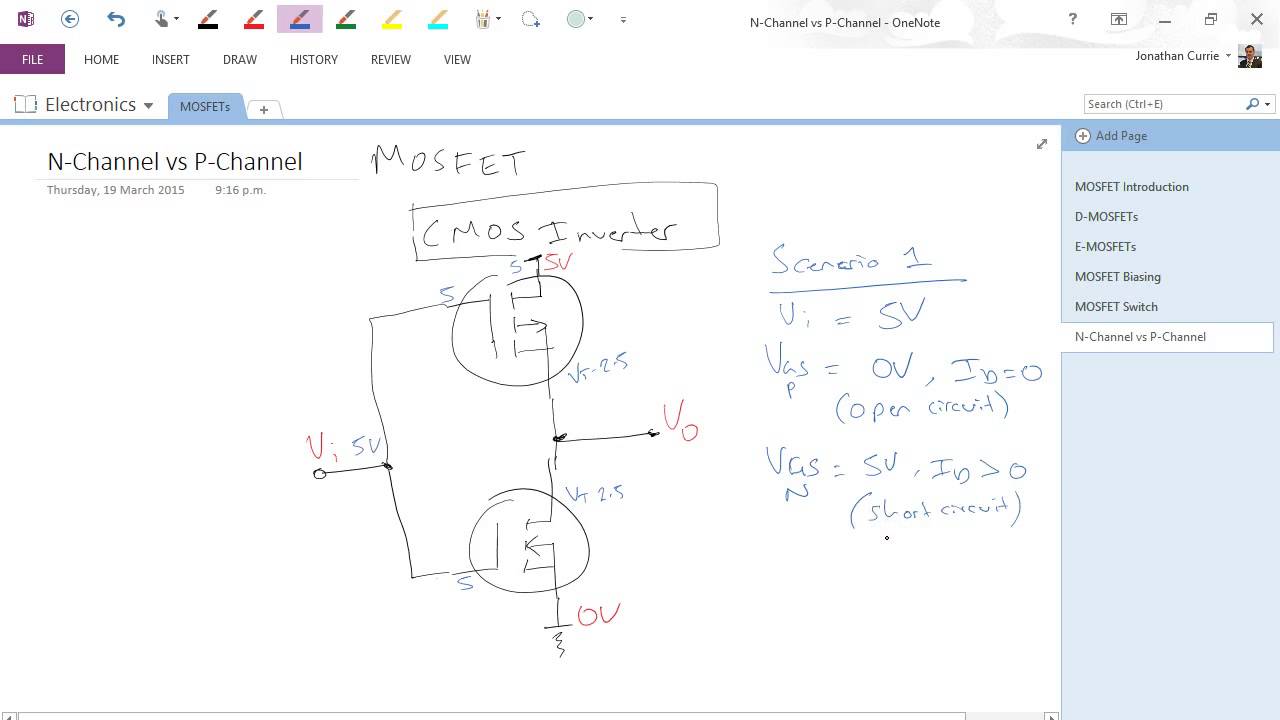 N-Channel vs P-Channel - OneNote
?
Jonathan Currie
FILE HOME INSERT DRAW HISTORY REVIEW VIEW
Electronics MOSFETs
Search (Ctrl+E)
Add Page
MOSFET Introduction
D-MOSFETs
E-MOSFETs
MOSFET Biasing
MOSFET Switch
N-Channel vs P-Channel
N-Channel vs P-Channel
Thursday, 19 March 2015 9:16 p.m.
MOSFET
CMOS Inverter
5 5V
5
VT-2.5
Vi 5V
Vo
VT 2.5
5
0V
Scenario 1
Vi = 5V
VGS P = 0V, ID=0
(open circuit)
VGS N = 5V, ID>0
(short circuit)